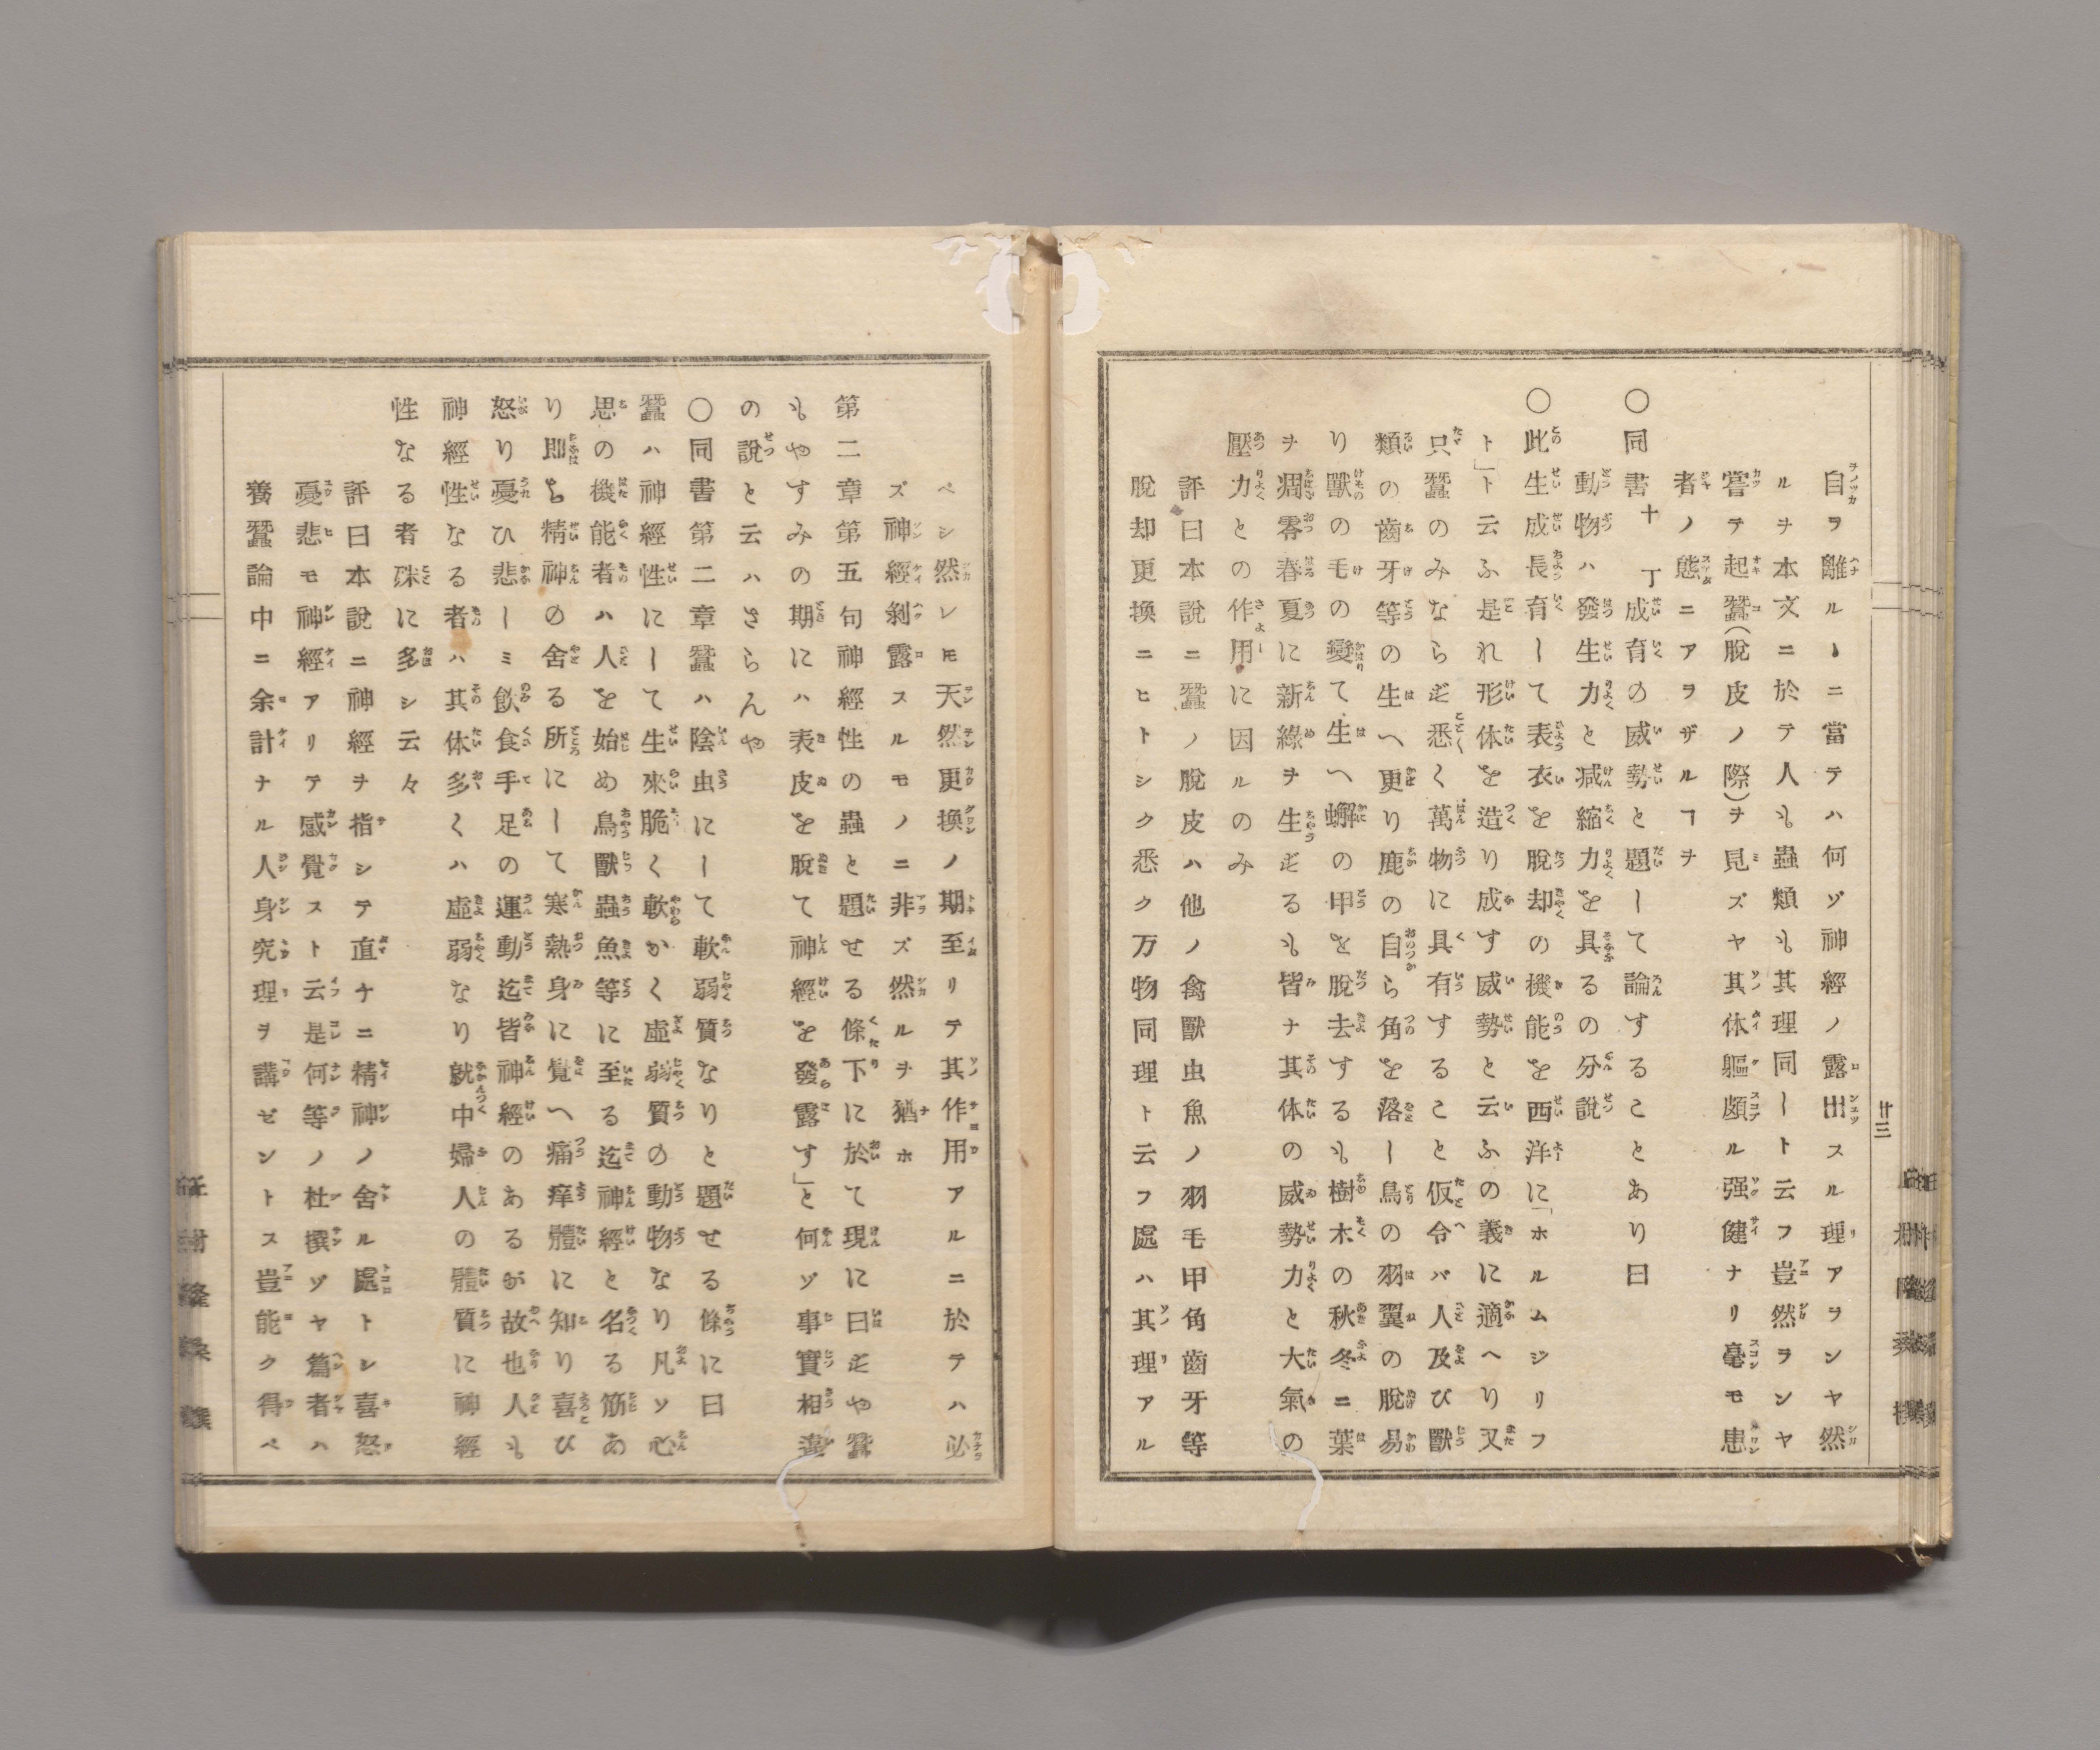 自ヲ離ルヽニ當テハ何ゾ神經ノ露出スル理アヲンヤ然
ルヲ本文ニ於テ人も蟲類も其理同一ト云フ豈然ヲンヤ
嘗テ起蠶(脫皮ノ際)ヲ見ズヤ其体軀頗ル强健ナリ毫モ患
者ノ態ニアヲザルヿヲ
〇同書十丁成育の威勢と題して論することあり曰
動物ハ發生力と减縮力とを具るの分說
〇此生成長育して表衣を脫却の機能を西洋に「ホルムジリフ
ト」ト云ふ是れ形体を造り成す威勢と云ふの義に適へり又
只蠶のみならず悉く萬物に具有すること仮令バ人及び獸
類の齒牙等の生へ更り鹿の自ら角を落し鳥の羽翼の脫易
り獸の毛の變て生へ蠏の甲を脫去するも樹木の秋冬ニ葉
ヲ凋零春夏に新綠ヲ生ずるも皆ナ其体の威勢力と大氣の
壓力との作用に因ルのみ
評曰本說ニ蠶ノ脫皮ハ他ノ禽獸虫魚ノ羽毛甲角齒牙等
脫却更換ニヒトシク悉ク万物同理ト云フ處ハ其理アル
廿三
ベシ然レモ天然更換ノ期至リテ其作用アルニ於テハ必
ズ神經剝露スルモノニ非ズ然ルヲ猶ホ
第二章第五句神經性の蟲と題せる條下に於て現に曰ずや蠶
もやすみの期にハ表皮を脫て神經を發露す」と何ゾ事實相違
の說と云ハさらんや
〇同書第二章蠶ハ陰虫にして軟弱質なりと題せる條に曰
蠶ハ神經性にして生來脆く軟かく虛弱質の動物なり凡ソ心
思の機能者ハ人を始め鳥獸蟲魚等に至る迄神經と名る筋あ
り即を精神の舍る所にして寒熱身に覺へ痛痒體に知り喜び
怒り憂ひ悲しミ飮食手足の運動迄皆神經のあるが故也人も
神經性なる者ハ其体多くハ虛弱なり就中婦人の體質に神經
性なる者殊に多シ云々
評曰本說ニ神經ヲ指シテ直ナニ精神ノ舍ル處トシ喜怒
憂悲モ神經アリテ感覺スト云是何等ノ杜撰ゾヤ篇者ハ
養蠶論中ニ余計ナル人身究理ヲ講ゼントス豈能ク得ベ